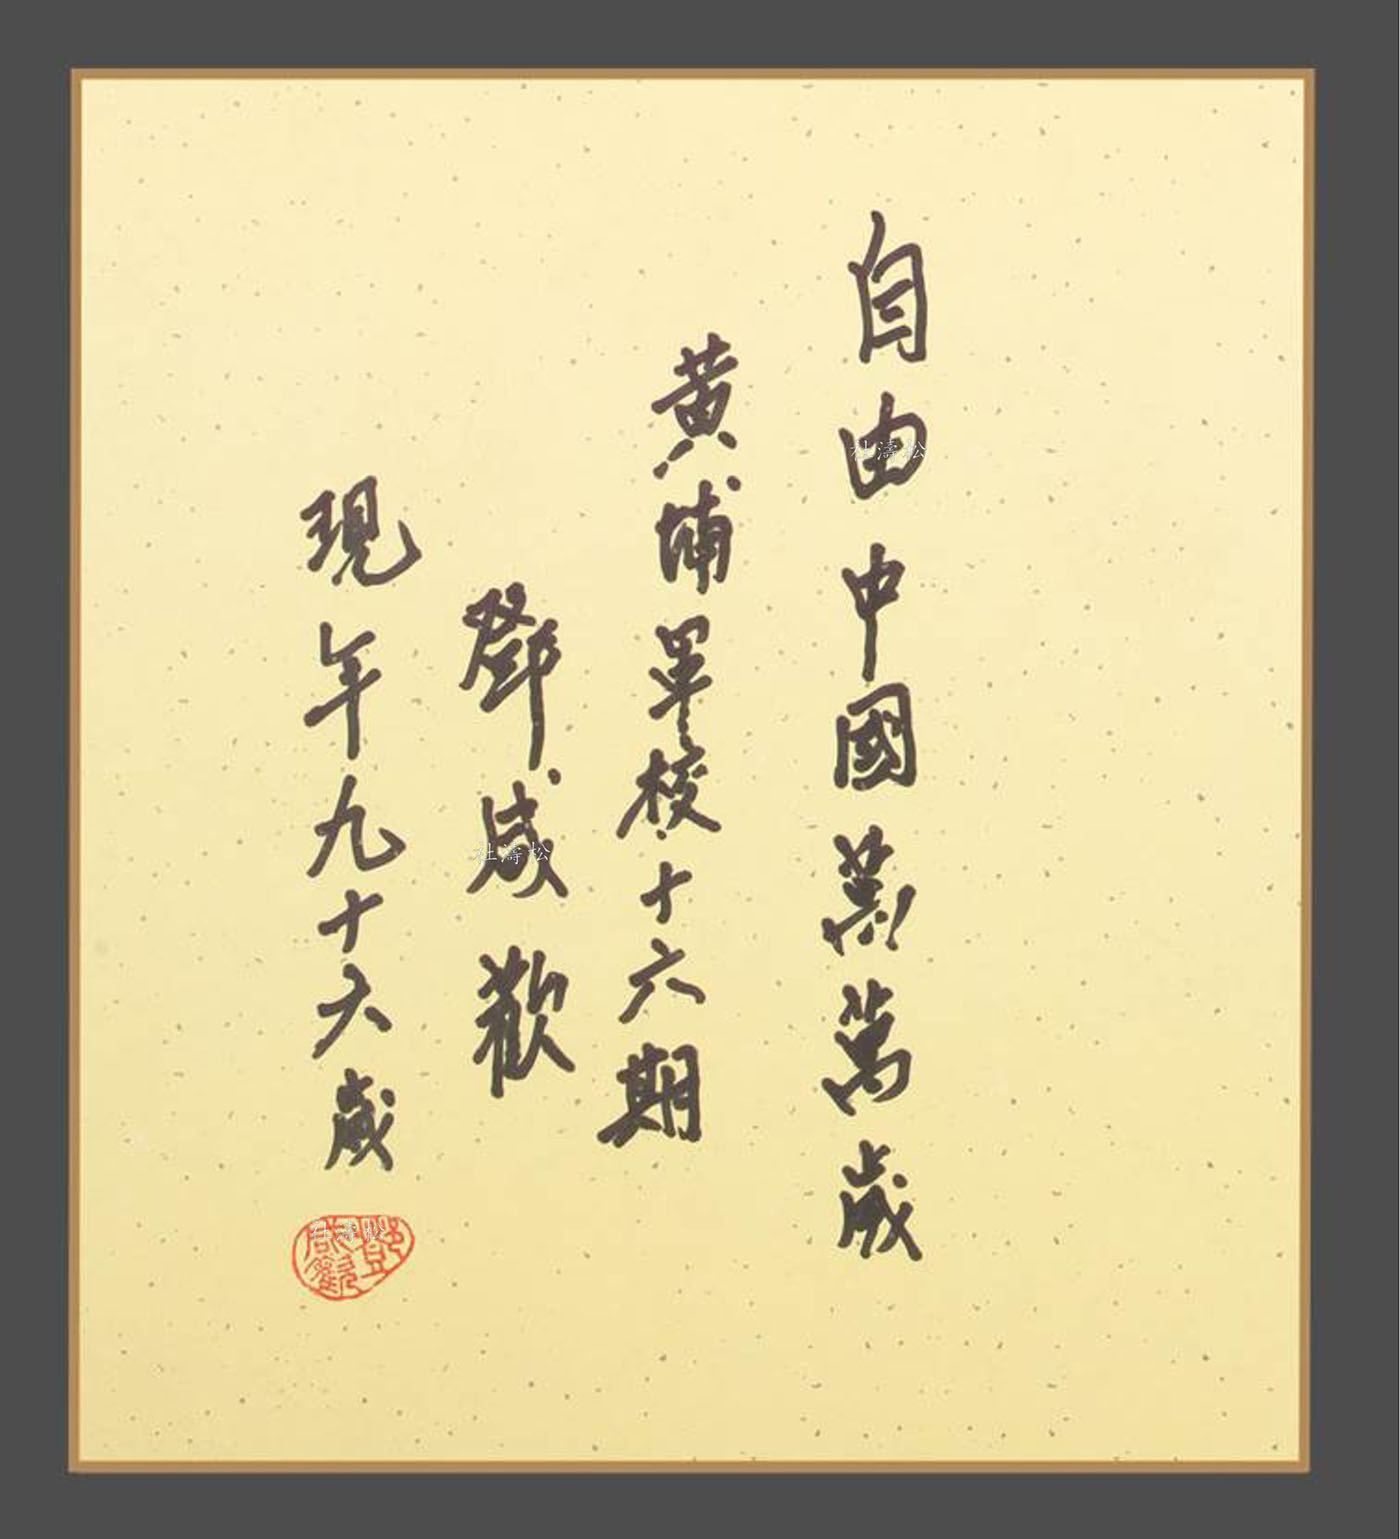 自由中國萬萬歲
黄埔軍校十六期
鄧咸歡
現年九十六歲
杜濤松
杜濤松
杜濤松